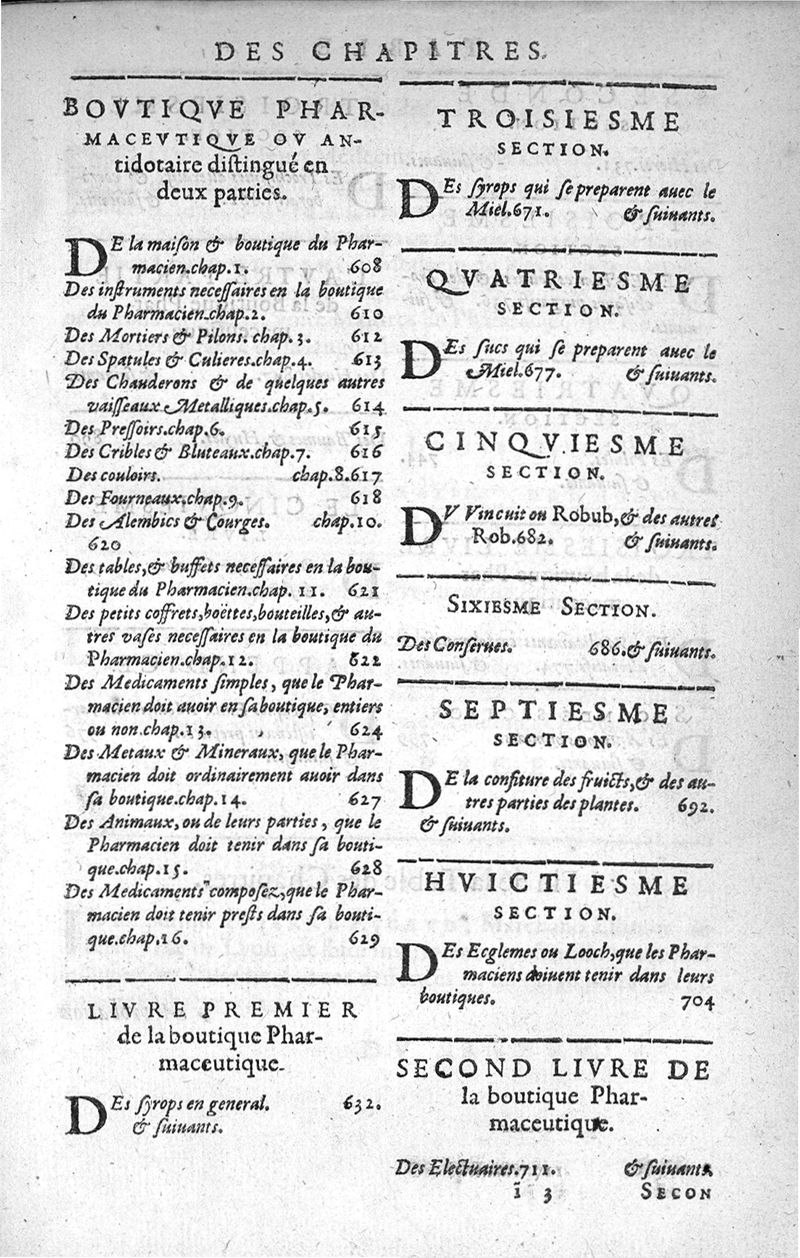 DES CHAPITRES.
BOVTIQVE PHAR-
MACEVTIQVE OV AN-
tidotaire distingué en
deux parties.
DE la maison & boutique du Phar-
macien.chap.1. 608
Des instruments necessaires en la boutique
du Pharmacien.chap.2. 610
Des Mortiers & Pilons. chap.3. 612
Des Spatules & Culieres.chap.4. 613
Des Chauderons & de quelques autres
vaisseaux Metalliques.chap.5. 614
Des Pressoirs.chap.6. 615
Des Cribles & Bluteaux.chap.7. 616
Des couloirs. chap.8.617
Des Fourneaux.chap.9. 618
Des Alembics & Courges. chap.10.
620
Des tables,& buffets necessaires en la bou-
tique du Pharmacien.chap. 11. 621
Des petits coffrets,boëttes,bouteilles,& au-
tres vases necessaires en la boutique du
Pharmacien.chap.12. 622
Des Medicaments simples, que le Phar-
macien doit auoir en sa boutique, entiers
ou non.chap.13. 624
Des Metaux & Mineraux, que le Phar-
macien doit ordinairement auoir dans
sa boutique.chap.14. 627
Des Animaux, ou de leurs parties, que le
Pharmacien doit tenir dans sa bouti-
que.chap.15. 628
Des Medicaments composez,que le Phar-
macien doit tenir prests dans sa bouti-
que.chap.16. 629
LIVRE PREMIER
de la boutique Phar-
maceutique.
DEs syrops en general. 632.
& suiuants.
TROISIESME
SECTION.
DEs syrops qui se preparent auec le
Miel.671. & suiuants.
QVATRIESME
SECTION.
DEs sucs qui se preparent auec le
Miel.677. & suiuants.
CINQVIESME
SECTION.
DV Vin cuit ou Robub,& des autres
Rob.682. & suiuants.
SIXIESME SECTION.
Des Conserues. 686.& suiuants.
SEPTIESME
SECTION.
DE la confiture des fruicts,& des au-
tres parties des plantes. 692.
& suiuants.
HVICTIESME
SECTION.
DEs Ecglemes ou Looch,que les Phar-
maciens doiuent tenir dans leurs
boutiques. 704
SECOND LIVRE DE
la boutique Phar-
maceutique.
Des Electuaires.711. & suiuants
i 3 SECON